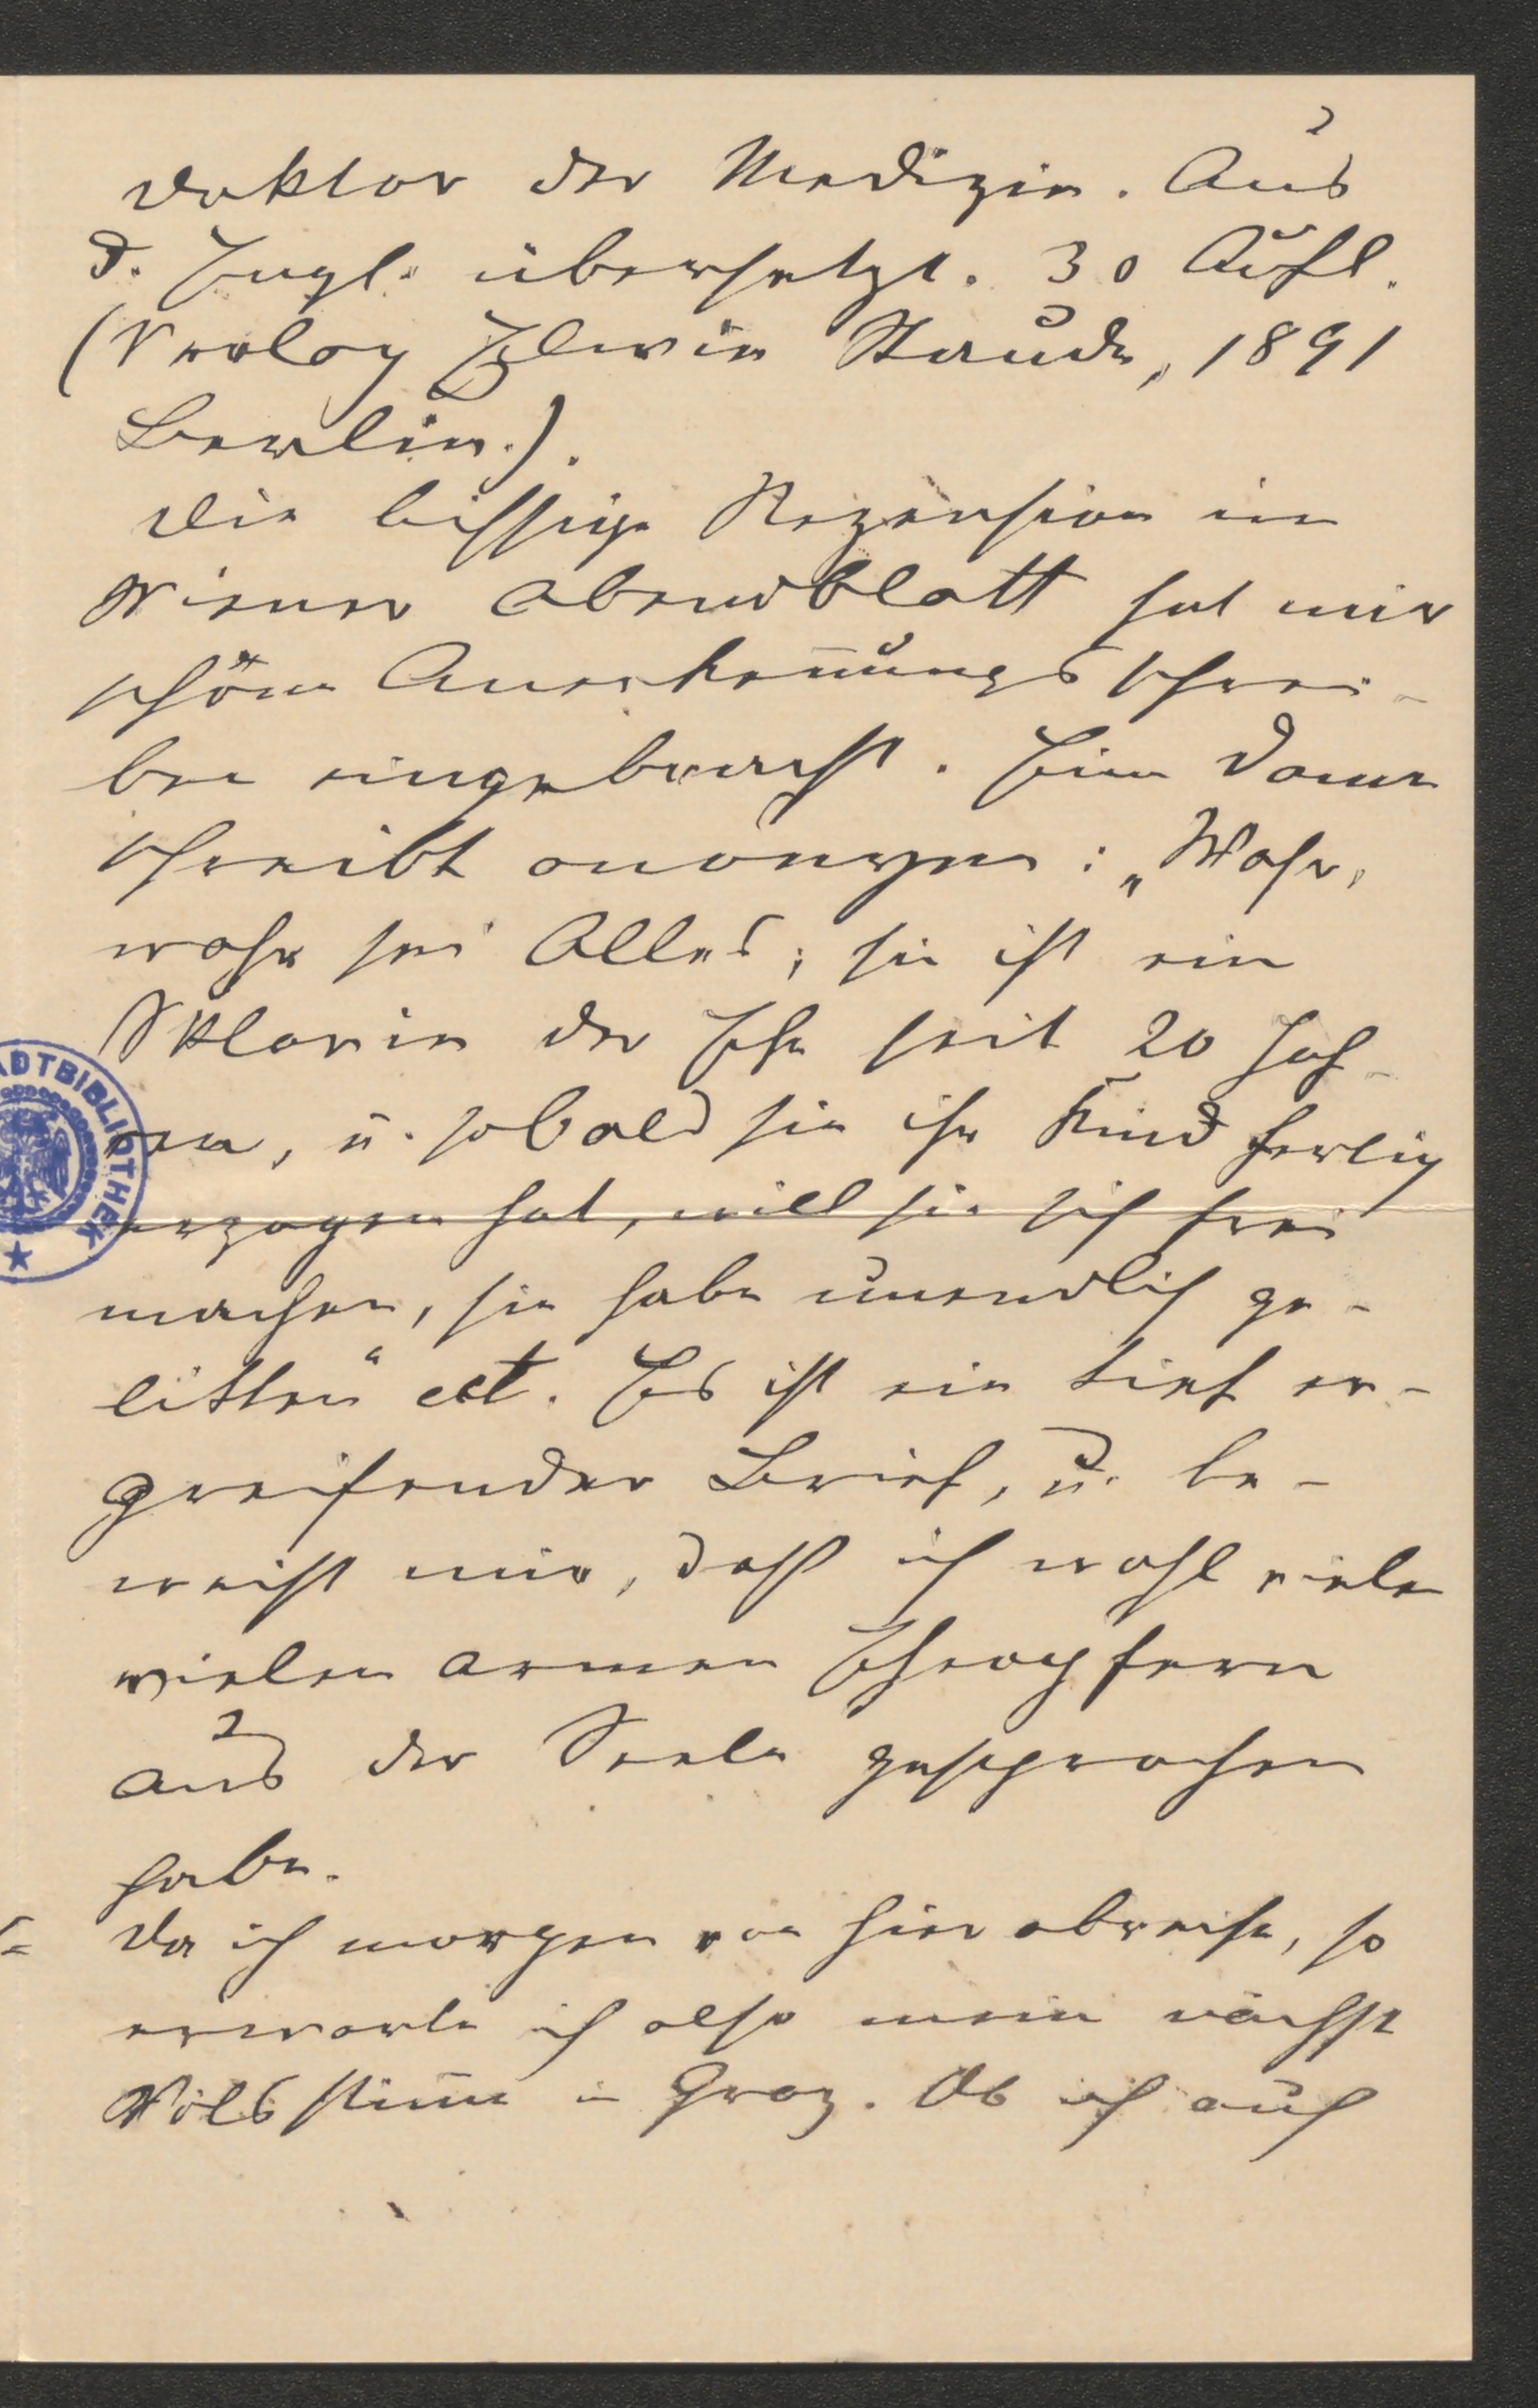 Doktor der Medizin. Aus
d. Engl. übersetzt. 30 Aufl.
(Verlag Elwin Staude, 1891
Berlin.).
Die bissige Rezension im
Wiener Abendblatt hat mir
schöne Anerkennungsschrei-
ben eingebracht. Eine Dame
schreibt anonym: „Wahr,
wahr sei Alles; sie ist ein
Sklavin der Ehe seit 20 Jah-
ren, u. sobald sie ihr Kind fertig
erzogen hat, will sie sich frei
machen, sie habe unendlich ge-
litten“ ect. Es ist ein tief er-
greifender Brief, u. be-
weist mir, daß ich wohl viele
vielen armen Eheopfern
aus der Seele gesprochen
habe.
Da ich morgen von hier abreise, so
erwarte ich also mein nächste
Volksstimme in Graz. Ob ich auch
STADTBIBLIOTHEK